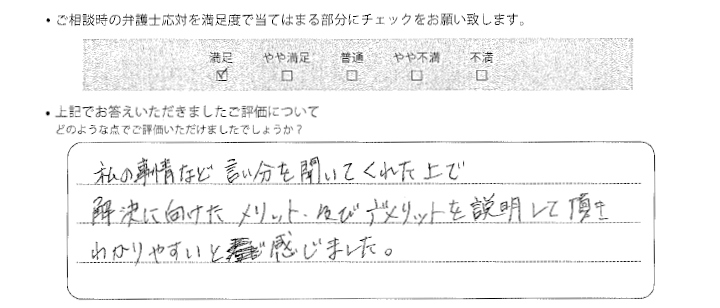 ・ご相談時の弁護士応対を満足度で当てはまる部分にチェックをお願い致します。
満足 やや満足 普通 やや不満 不満
☑ □ □ □ □
・上記でお答えいただきましたご評価について
どのような点でご評価いただけましたでしょうか？
私の事情など言い分を聞いてくれた上で
解決に向けたメリット、及びデメリットを説明して頂き
わかりやすいと感じました。